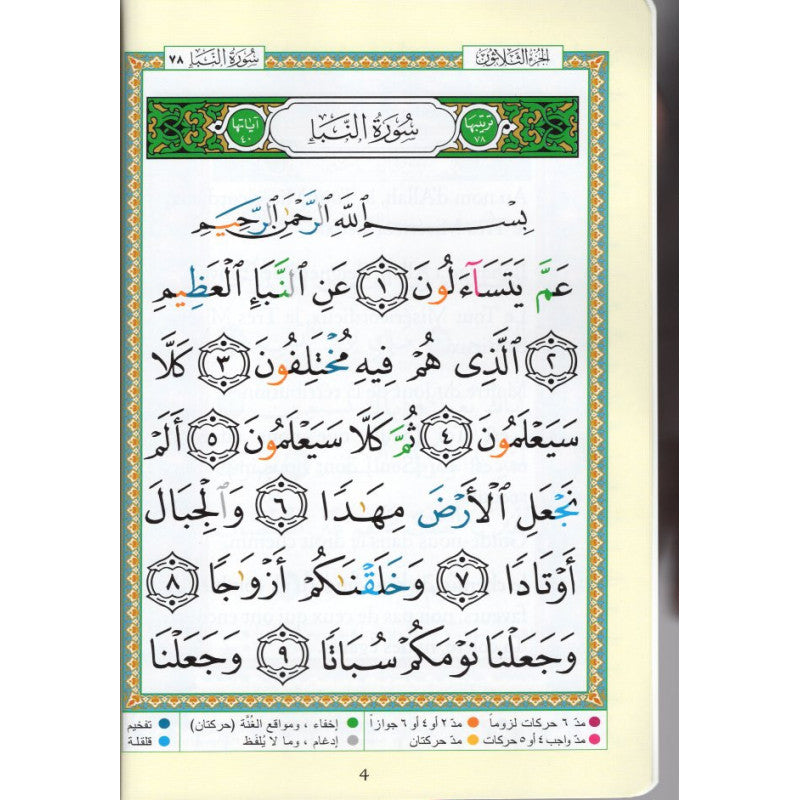 الجزء الثلاثون
سورة النبإ ٧٨
ترتيبها ٧٨
سورة النبإ
آياتها ٤٠
بِسْمِ ٱللَّهِ ٱلرَّحْمَٰنِ ٱلرَّحِيمِ
عَمَّ يَتَسَآءَلُونَ ١ عَنِ ٱلنَّبَإِ ٱلْعَظِيمِ
٢ ٱلَّذِى هُمْ فِيهِ مُخْتَلِفُونَ ٣ كَلَّا
سَيَعْلَمُونَ ٤ ثُمَّ كَلَّا سَيَعْلَمُونَ ٥ أَلَمْ
نَجْعَلِ ٱلْأَرْضَ مِهَٰدًا ٦ وَٱلْجِبَالَ
أَوْتَادًا ٧ وَخَلَقْنَٰكُمْ أَزْوَٰجًا ٨
وَجَعَلْنَا نَوْمَكُمْ سُبَاتًا ٩ وَجَعَلْنَا
مدّ ٦ حركات لزوماً مدّ ٢ أو ٤ أو ٦ جوازاً إخفاء ، ومواقع الغُنَّة (حركتان) تفخيم
مدّ واجب ٤ أو ٥ حركات مدّ حركتان إدغام ، وما لا يُلفَظ قلقلة
4